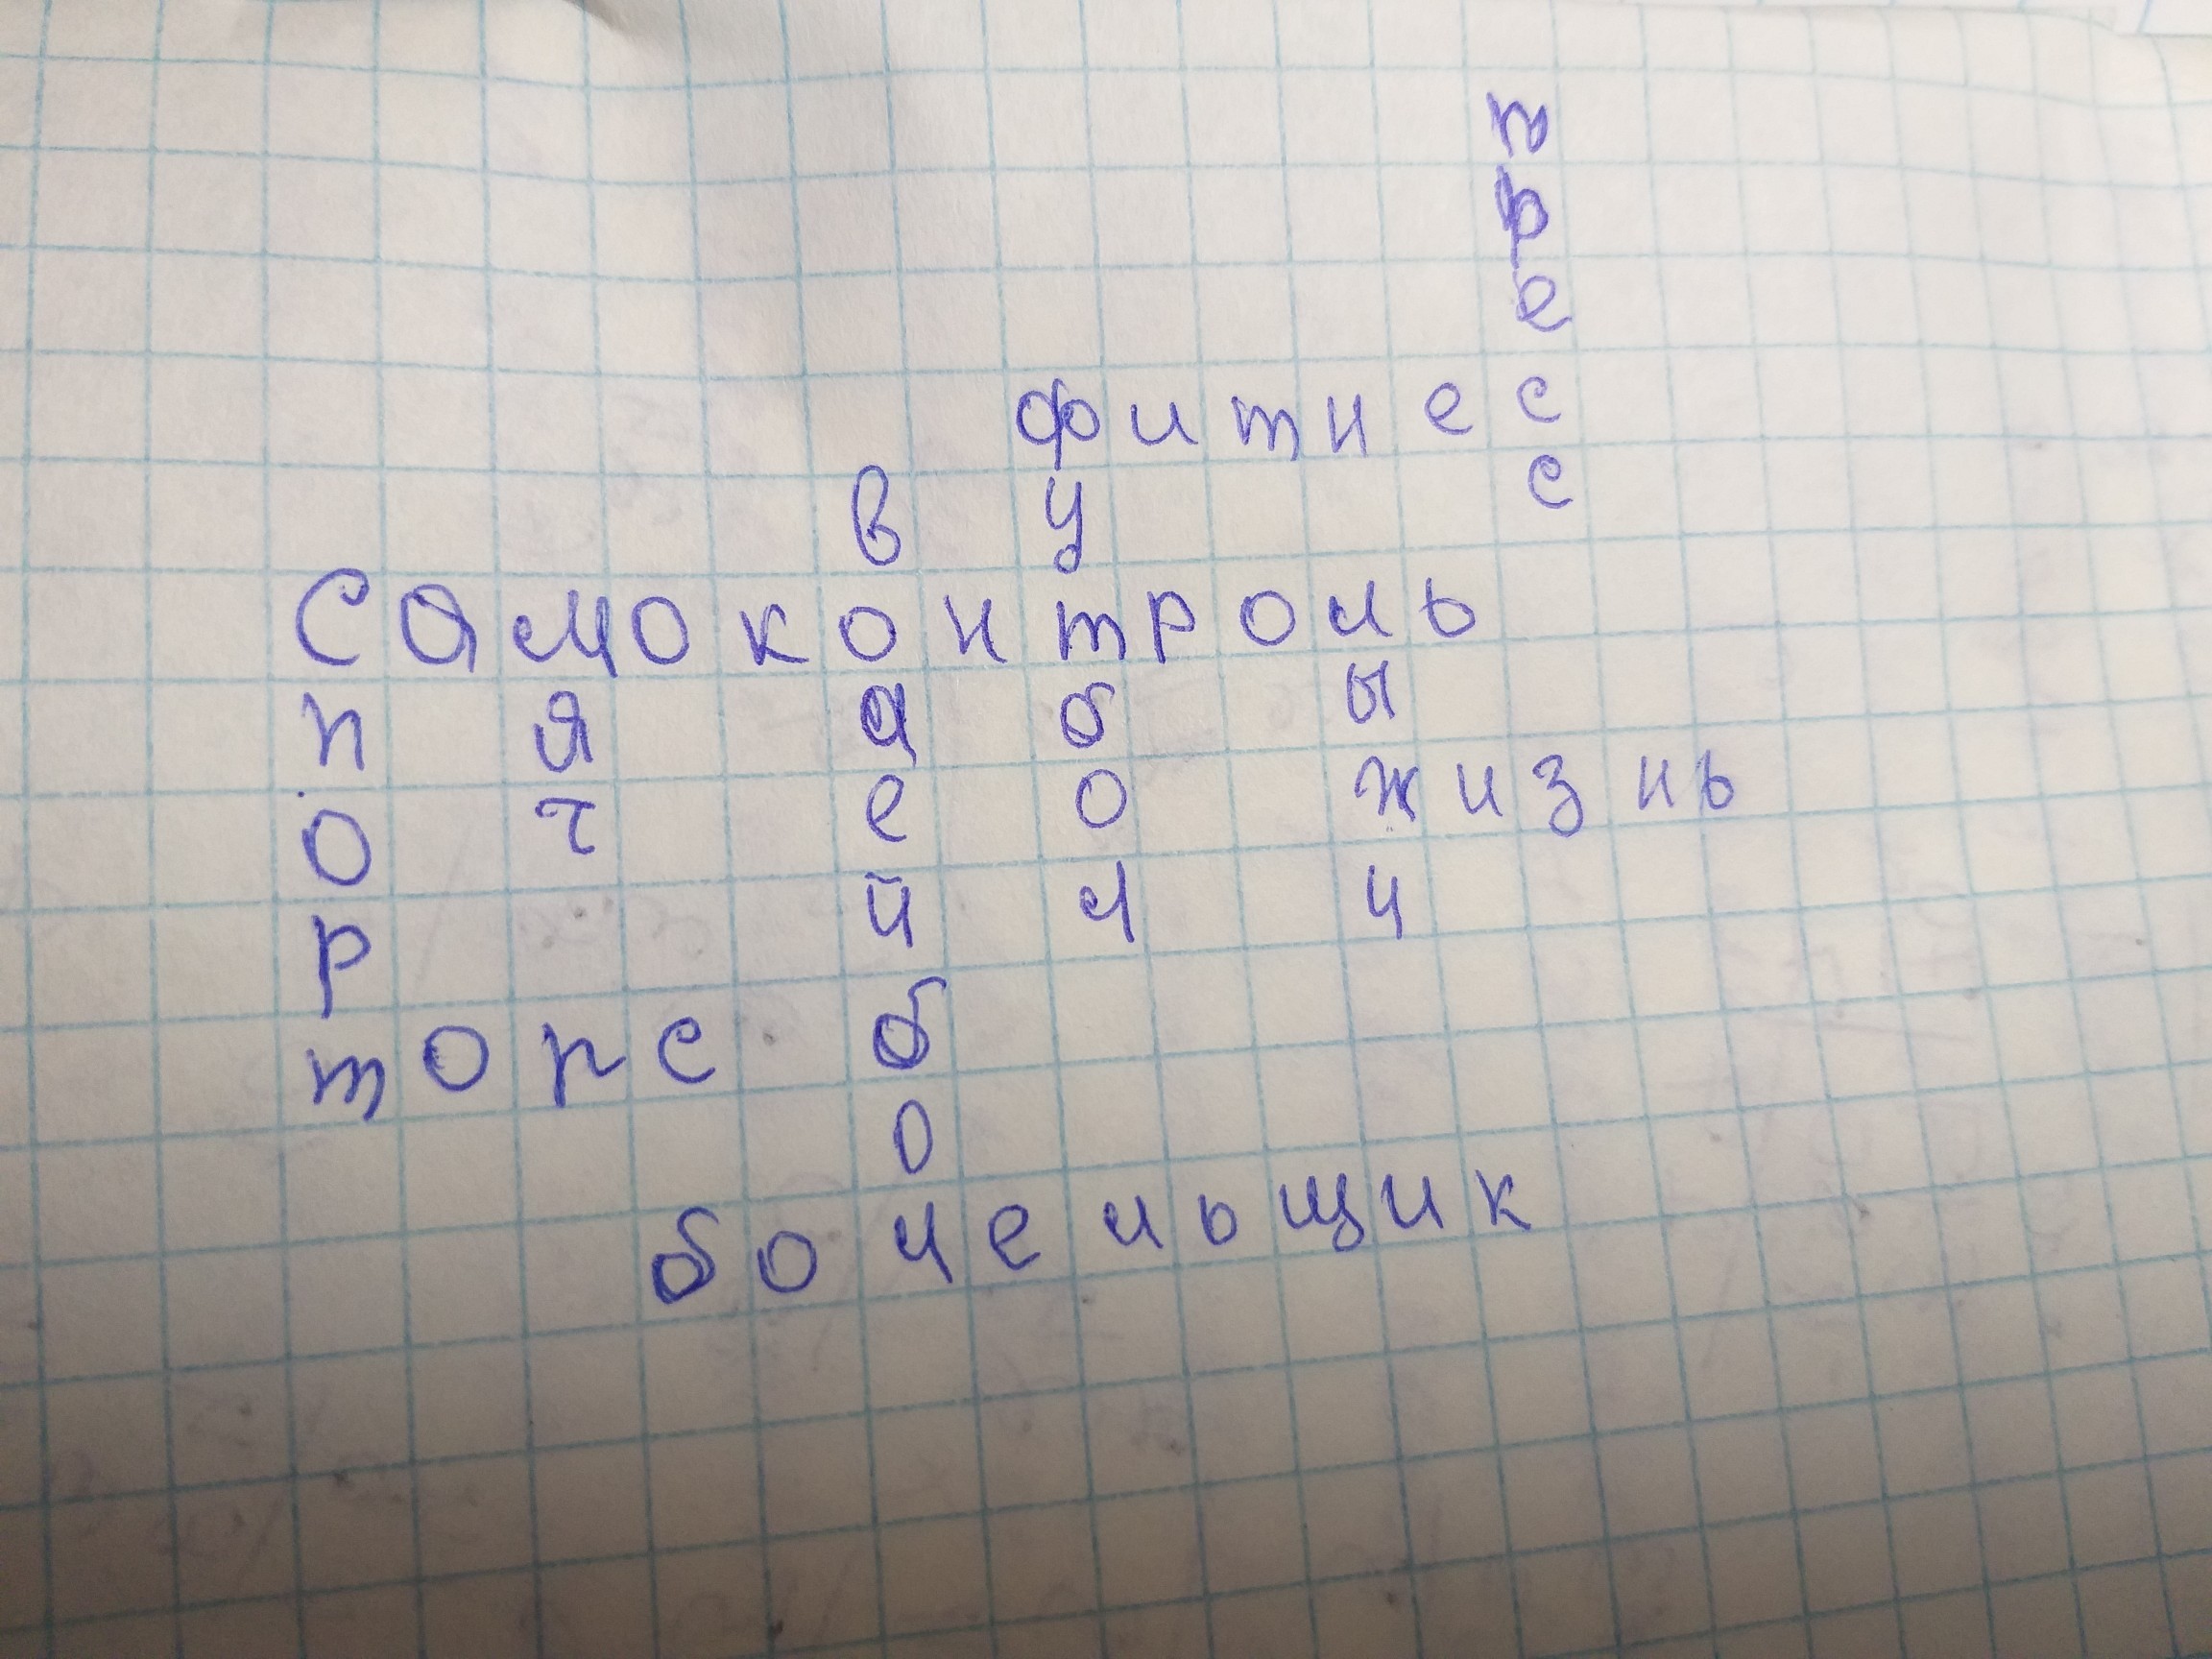 п
р
е
фитнес
в у с
Самоконтроль
п я л б ы
о ч е о жизнь
р й л и
торс б
о
болельщик